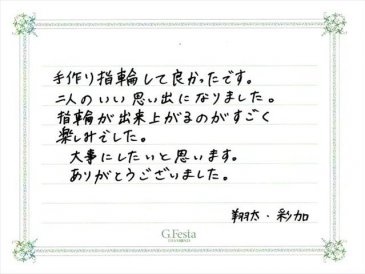 手作り指輪して良かったです。
二人のいい思い出になりました。
指輪が出来上がるのがすごく
楽しみでした。
大事にしたいと思います。
ありがとうございました。
翔太・彩加
G.Festa